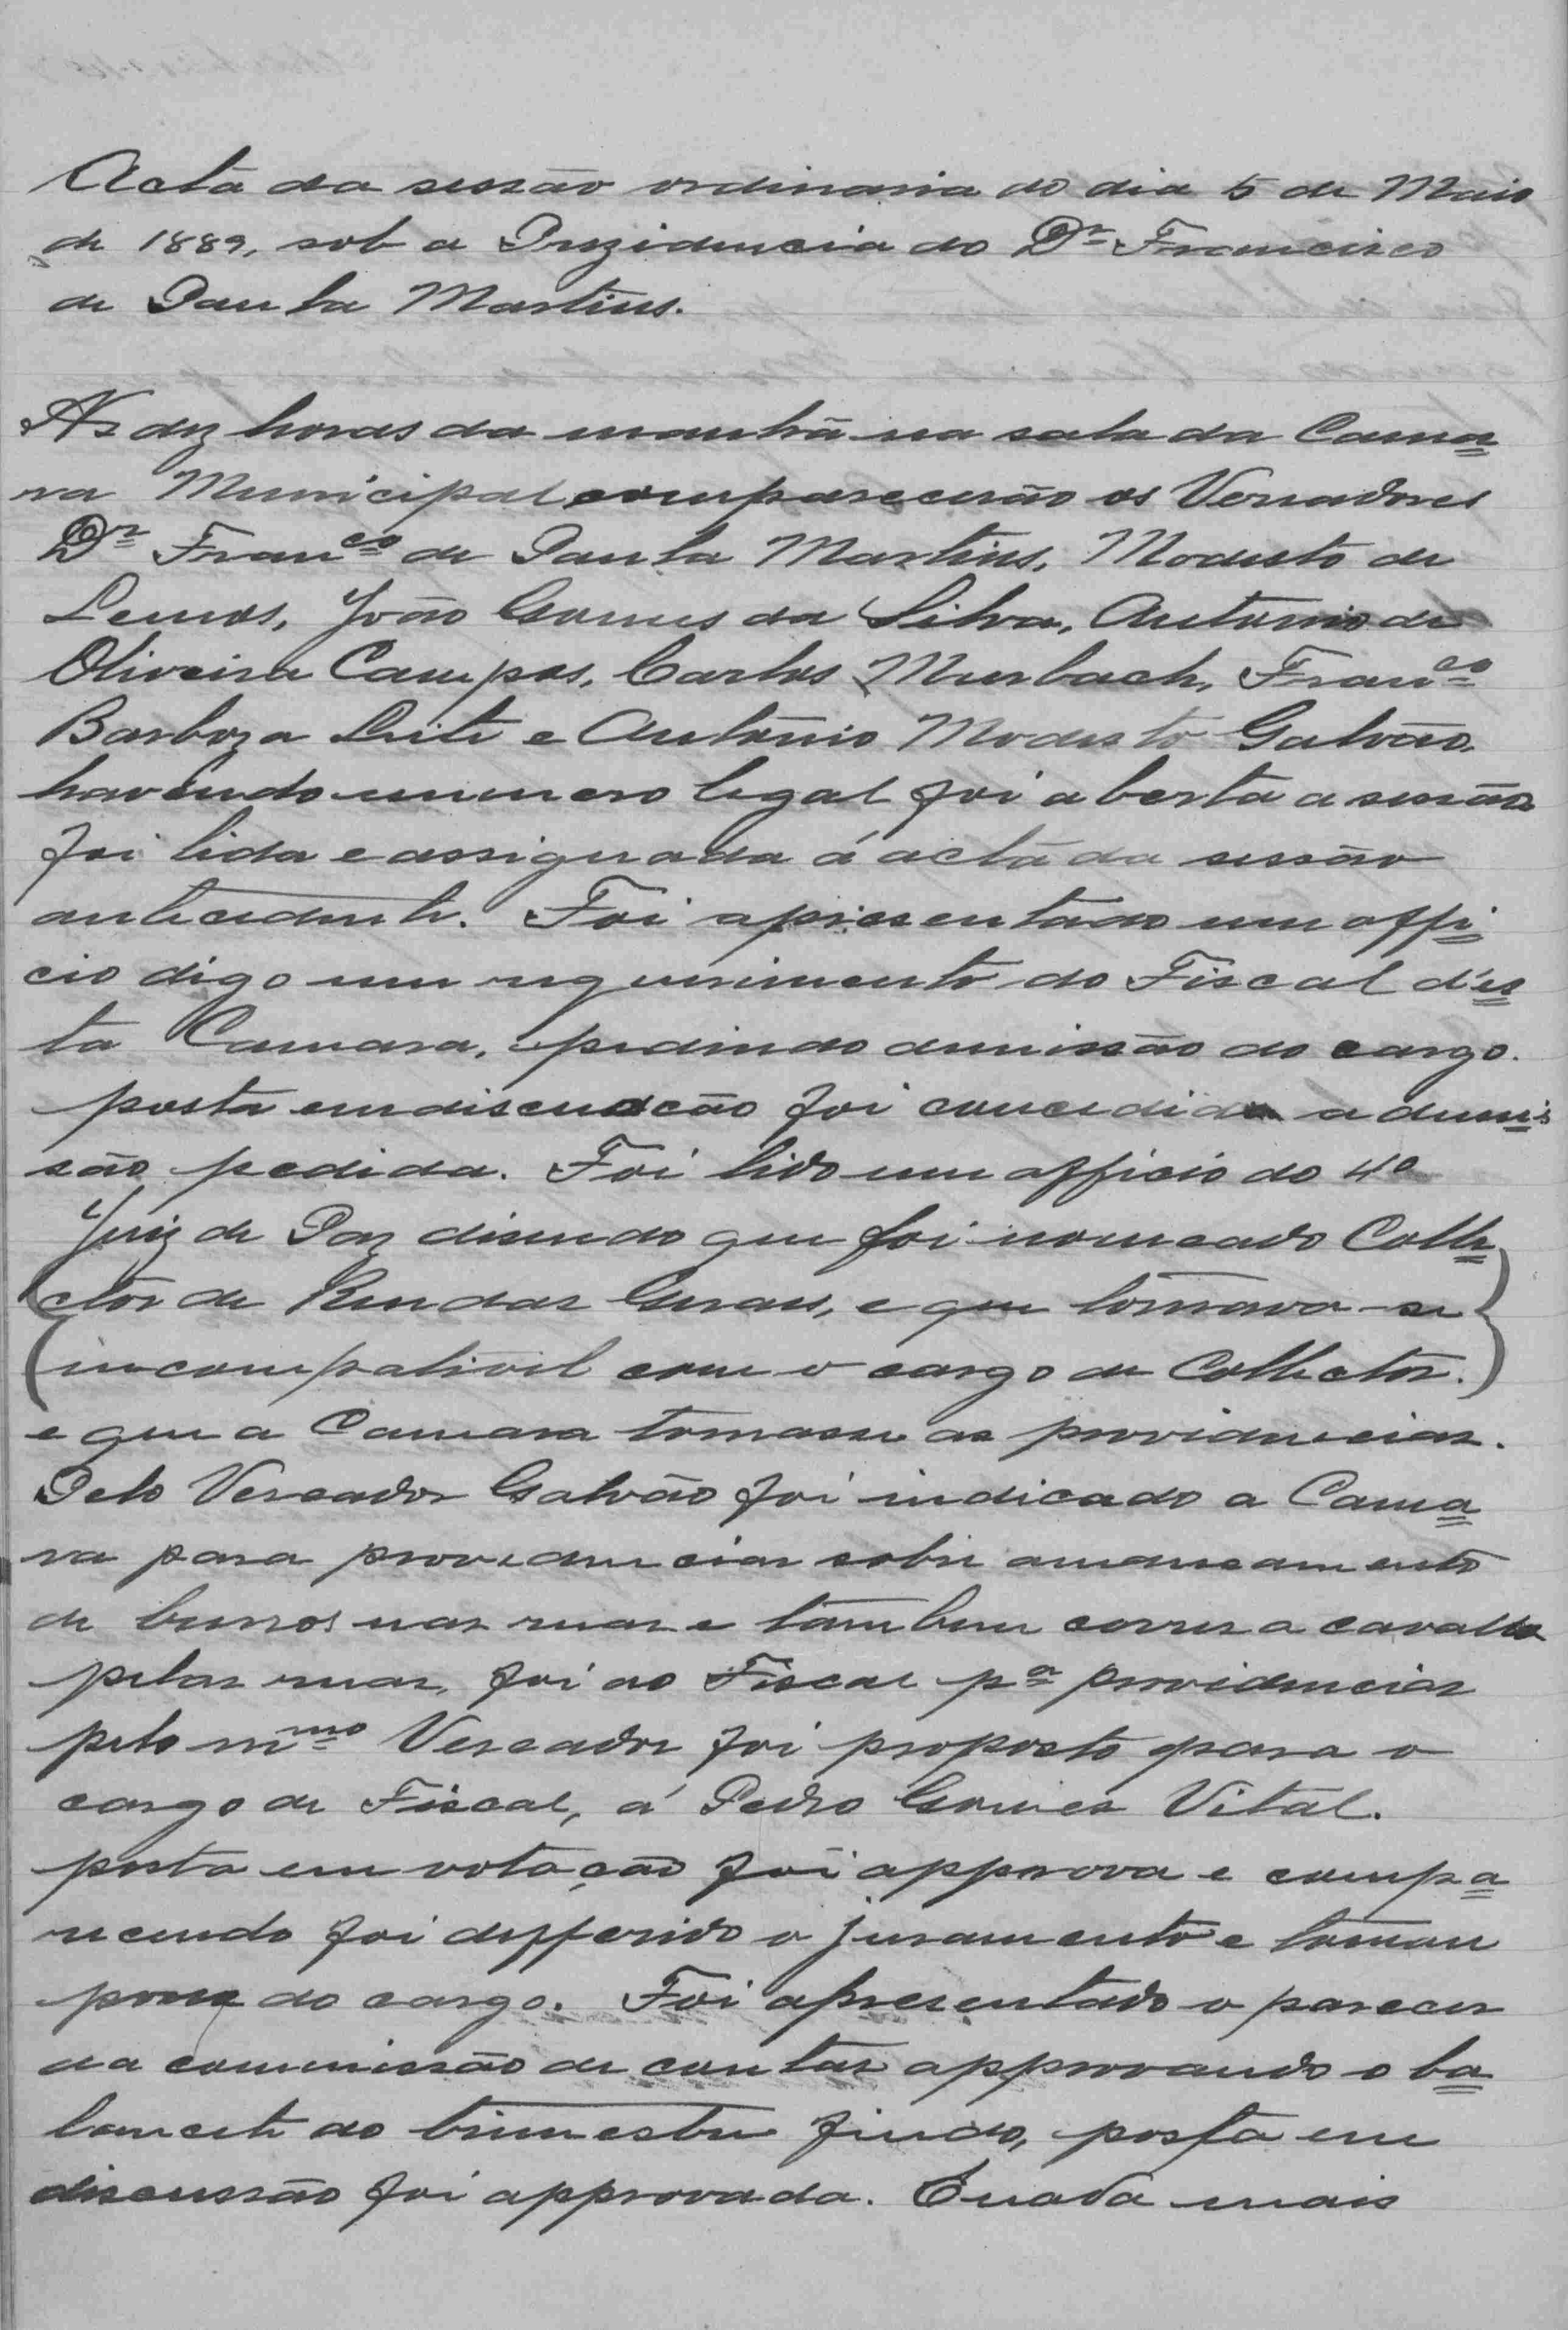 Acta da sessão ordinaria do dia 5 de Maio
de 1889, sob a Prezidencia do Dr Francisco
de Paula Martins.
As dez horas da manhã na sala da Cama
ra Municipal comparecerão os Vereadores
Dr Franco de Paula Martins, Modesto de
Lemos, João Gomes da Silva, Antonio de
Oliveira Campos, Carlos Murbach, Franco
Barboza Leite e Antonio Modesto Galvão.
havendo numero legal foi aberta a sessão
foi lida e assignada á acta da sessão
antecedente. Foi apresentado um offi
cio digo um requerimento do Fiscal d'es
ta Camara, pedindo demissão do cargo.
posta em discucão foi concedida a demis
são pedida. Foi lido um officio do 4º
Juiz de Paz disendo que foi nomeado Colle
ctor de Rendas Geraes, e que tornava-se
incompativil com o cargo de Collector.
e que a Camara tomasse as providencias.
Pelo Vereador Galvão foi indicado a Cama
ra para providenciar sobre amancamento
de burros nas ruas e tambem correr a cavallo
pelas ruas, foi ao Fiscal pa providenciar
pelo mmo Vereador foi proposto para o
cargo de Fiscal, á Pedro Gomes Vital.
posta em votação foi approva e compa
recendo foi defferido o juramento e tomou
posse do cargo. Foi apresentado o parecer
da commissão de contas approvando o ba
lancete do trimestre findo, posta em
discussão foi approvada. E nada mais